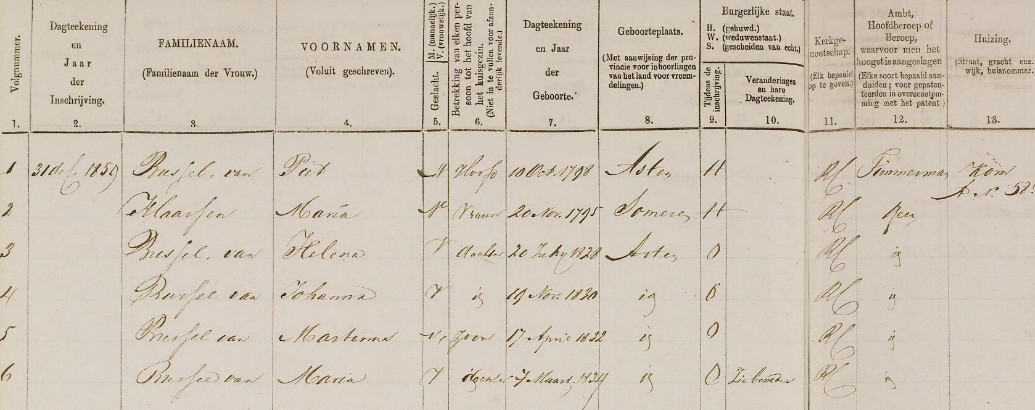 Volgnummer.
Dagteekening en Jaar der Inschrijving.
FAMILIENAAM. (Familienaam der Vrouw.)
VOORNAMEN. (Voluit geschreven.)
Geslacht. M. (mannelijk.) V. (vrouwelijk.)
Betrekking van elken persoon tot het hoofd van het huisgezin. (Niet in te vullen voor afzonderlijk levende.)
Dagteekening en Jaar der Geboorte.
Geboorteplaats. (Met aanwijzing der provincie voor inboorlingen van het land voor vreemdelingen.)
Burgerlijke staat. H. (gehuwd.) W. (weduwenstaat.) S. (gescheiden van echt.)
Tijdens de inschrijving.
Veranderingen en hare Dagteekening.
Kerkgenootschap. (Elk bepaald op te geven.)
Ambt, Hoofdberoep of Beroep, waarvoor men het hoogst is aangeslagen (Elke soort bepaald aanduiden; voor gepatenteerden in overeenstemming met het patent)
Huizing. (Straat, gracht enz. wijk, huisnommer.)
1. 2. 3. 4. 5. 6. 7. 8. 9. 10. 11. 12. 13.
1 31 dec 1859 Bussel, van Piet M Hoofd 10 Oct. 1798 Asten H RC Timmerman Kom
A No 58
2 Klaassen Maria V Vrouw 20 Nov. 1795 Someren H RC Geen
3 Bussel, van Helena V dochter 20 1828 Asten O RC ig
4 Bussel van Johanna V ig 19 Nov. 1830 ig O RC ig
5 Bussel van Martinus M, Zoon 17 April 1832 ig O RC ig
6 Bussel van Maria V dochter 7 Maart 1834 ig O Zie RC ig